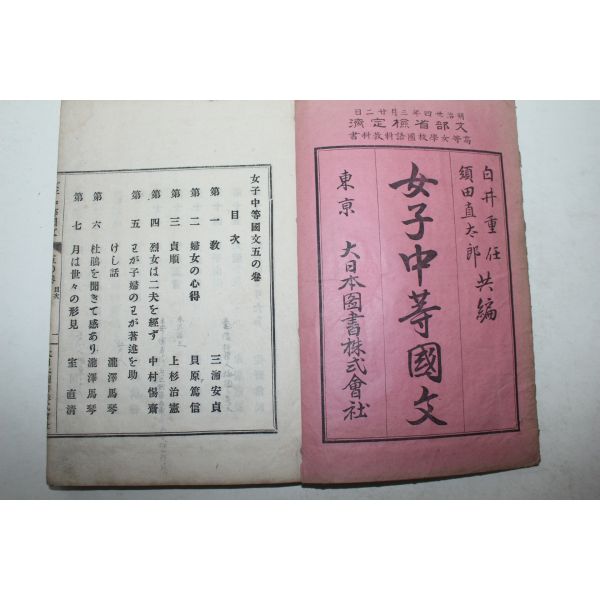 明治卅四年三月廿二日
文部省檢定濟
高等女學校國語科教科書
白井重任
須田直太郎
共編
女子中等國文
東京 大日本圖書株式會社
女子中等國文五の卷
目次
第一 教 三浦安貞
第二 婦女の心得 貝原篤信
第三 貞順 上杉治憲
第四 烈女は二夫を經ず 中村惕齋
第五 わが子婦のわが著述を助
けし話 瀧澤馬琴
第六 杜鵑を聞きて感あり 瀧澤馬琴
第七 月は世々の形見 室直清